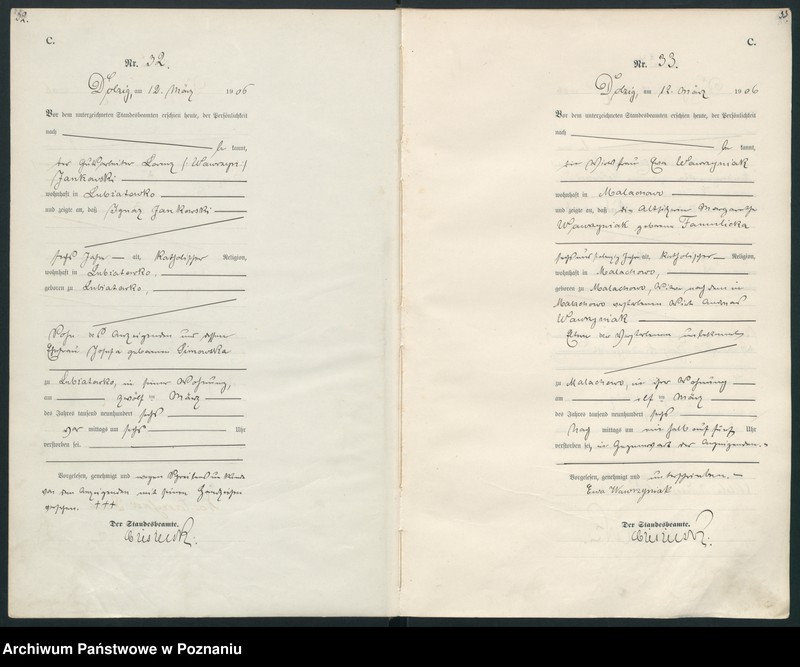 32.
C.
Nr. 32.
Dolzig, am 12. März 1906
Vor dem unterzeichneten Standesbeamten erschien heute, der Persönlichkeit
nach
kannt,
der Gutsarbeiter Lorenz (Wawrzyn)
Jankowski
wohnhaft in Lubiatowko
und zeigte an, daß Ignaz Jankowski
sechs Jahre alt, Katholischer Religion,
wohnhaft in Lubiatowko,
geboren zu Lubiatowko,
Sohn des Anzeigenden und dessen
Ehefrau Josefa geborenen Simowska
zu Lubiatowko, in seiner Wohnung,
am zwölften März
des Jahres tausend neunhundert sechs
Vor mittags um sechs Uhr
verstorben sei.
Vorgelesen, genehmigt und wegen Schreibensunkunde
von dem Anzeigenden mit seinem Handzeichen
versehen. +++
Der Standesbeamte.
33
C.
Nr. 33.
Dolzig, am 12. März 1906
Vor dem unterzeichneten Standesbeamten erschien heute, der Persönlichkeit
nach
be kannt,
die Wirtsfrau Ewa Wawrzyniak
wohnhaft in Malachowo
und zeigte an, daß die Altsitzerin Margaretha
Wawrzyniak geborene Tomulicka
alt, Katholischer Religion,
wohnhaft in Malachowo,
geboren zu Malachowo, Witwe, nach dem in
Malachowo verstorbenen Wirt Andreas
Wawrzyniak
Eltern der Verstorbenen unbekannt
zu Malachowo, in ihrer Wohnung
am elf ten März
des Jahres tausend neunhundert sechs
Nach mittags um ein halb auf fünf Uhr
verstorben sei, in Gegenwart der Anzeigenden.
Vorgelesen, genehmigt und unterschrieben.
Ewa Wawrzyniak
Der Standesbeamte.
Archiwum Państwowe w Poznaniu